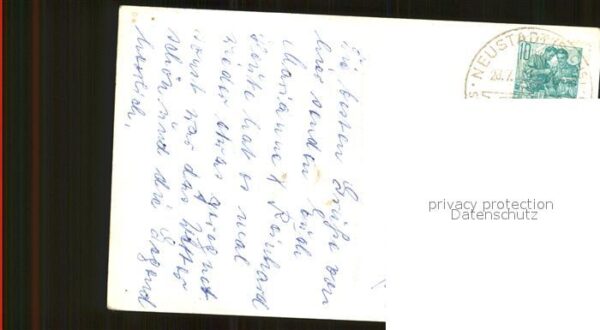 Die besten Grüße von
hier senden Euch
Marianne & Reinhard
Heute hat es mal
wieder etwas geregnet
sonst war das Wetter
schön und die Gegend
herrlich.
NEUSTADT
10
privacy protection
Datenschutz